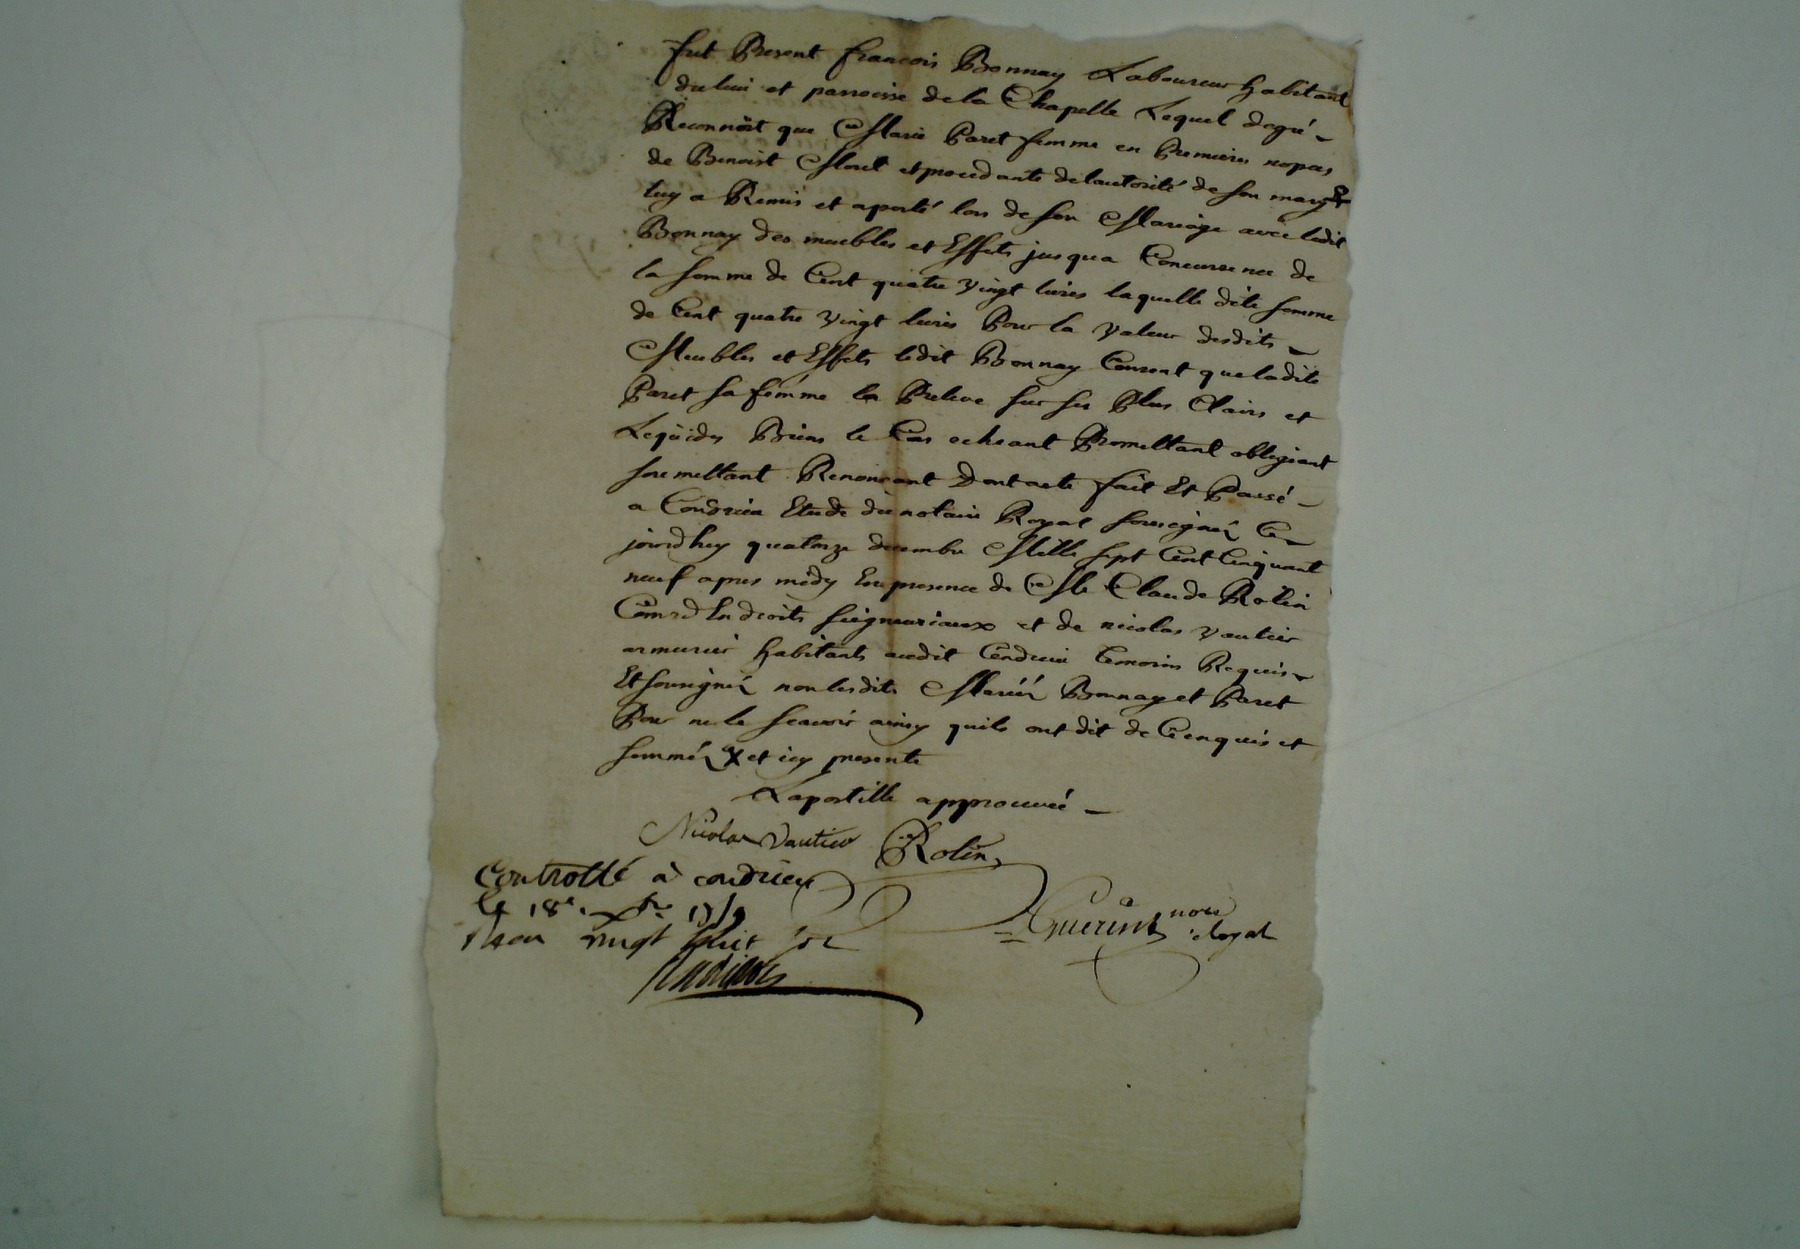 fut Present francois Bonnay Laboureur habitant
du lieu et parroisse de la Chapelle Lequel degré
Reconnoit que Marie Paret femme en Premieres nopces
de Benoist Morel et procedante de lautorité de son mary X
luy a Remis et aporté lors de son Mariage avec ledit
Bonnay des meubles et Effets jusqua Concurrence de
la somme de Cent quatre vingt livres laquelle dite somme
de Cent quatre vingt livres Pour la valeur desdits
Meubles et Effets ledit Bonnay Consent que ladite
Paret sa femme la Preleve sur ses Plus Clairs et
Liquides Biens le Cas echeant Promettant obligeant
soumettant Renonçant Dont acte fait Et Passé
a Condrieu Etude du notaire Royal soussigné Ce
jourdhuy quatorze decembre Mille sept Cent Cinquant
neuf apres midy En presence de Me Claude Rolin
Comrd En droits seigneuriaux et de nicolas vautier
armurier habitants audit Condrieu temoins Requis
Et soussignéz non lesdits Mariéz Bonnay et Paret
Pour ne le scavoir ainsy quils ont dit de Ce enquis et
sommés X et icy presente
Lapostille approuvée
Nicolas Vautier Rolin
Controllé à condrieu
Le 18e. xbre 1759
Reçu vingt huit sols
Guerin nore Royal